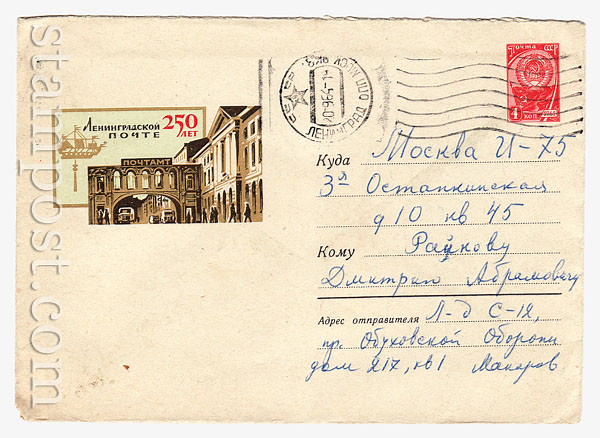 stampost.com
ЛЕНИНГРАДСКОЙ
ПОЧТЕ
250
ЛЕТ
ПОЧТАМТ
СССР
ЛЕНИНГРАД
почта СССР
4 коп
Куда Москва И-75
3я Останкинская
д 10 кв 45
Кому
Дмитрию Абрамовичу
Адрес отправителя Л-д С-12,
пр. Обуховской Обороны
дом 217, кв 1 Макаров